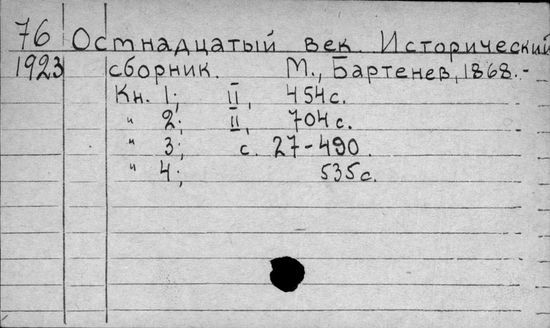 76 Осмнадцатый век. Исторический
1923 сборник. М., Бартенев, 1868.-
Кн. 1; II, 454с.
" 2; II, 704с.
" 3; с. 27-490.
" 4; 535с.